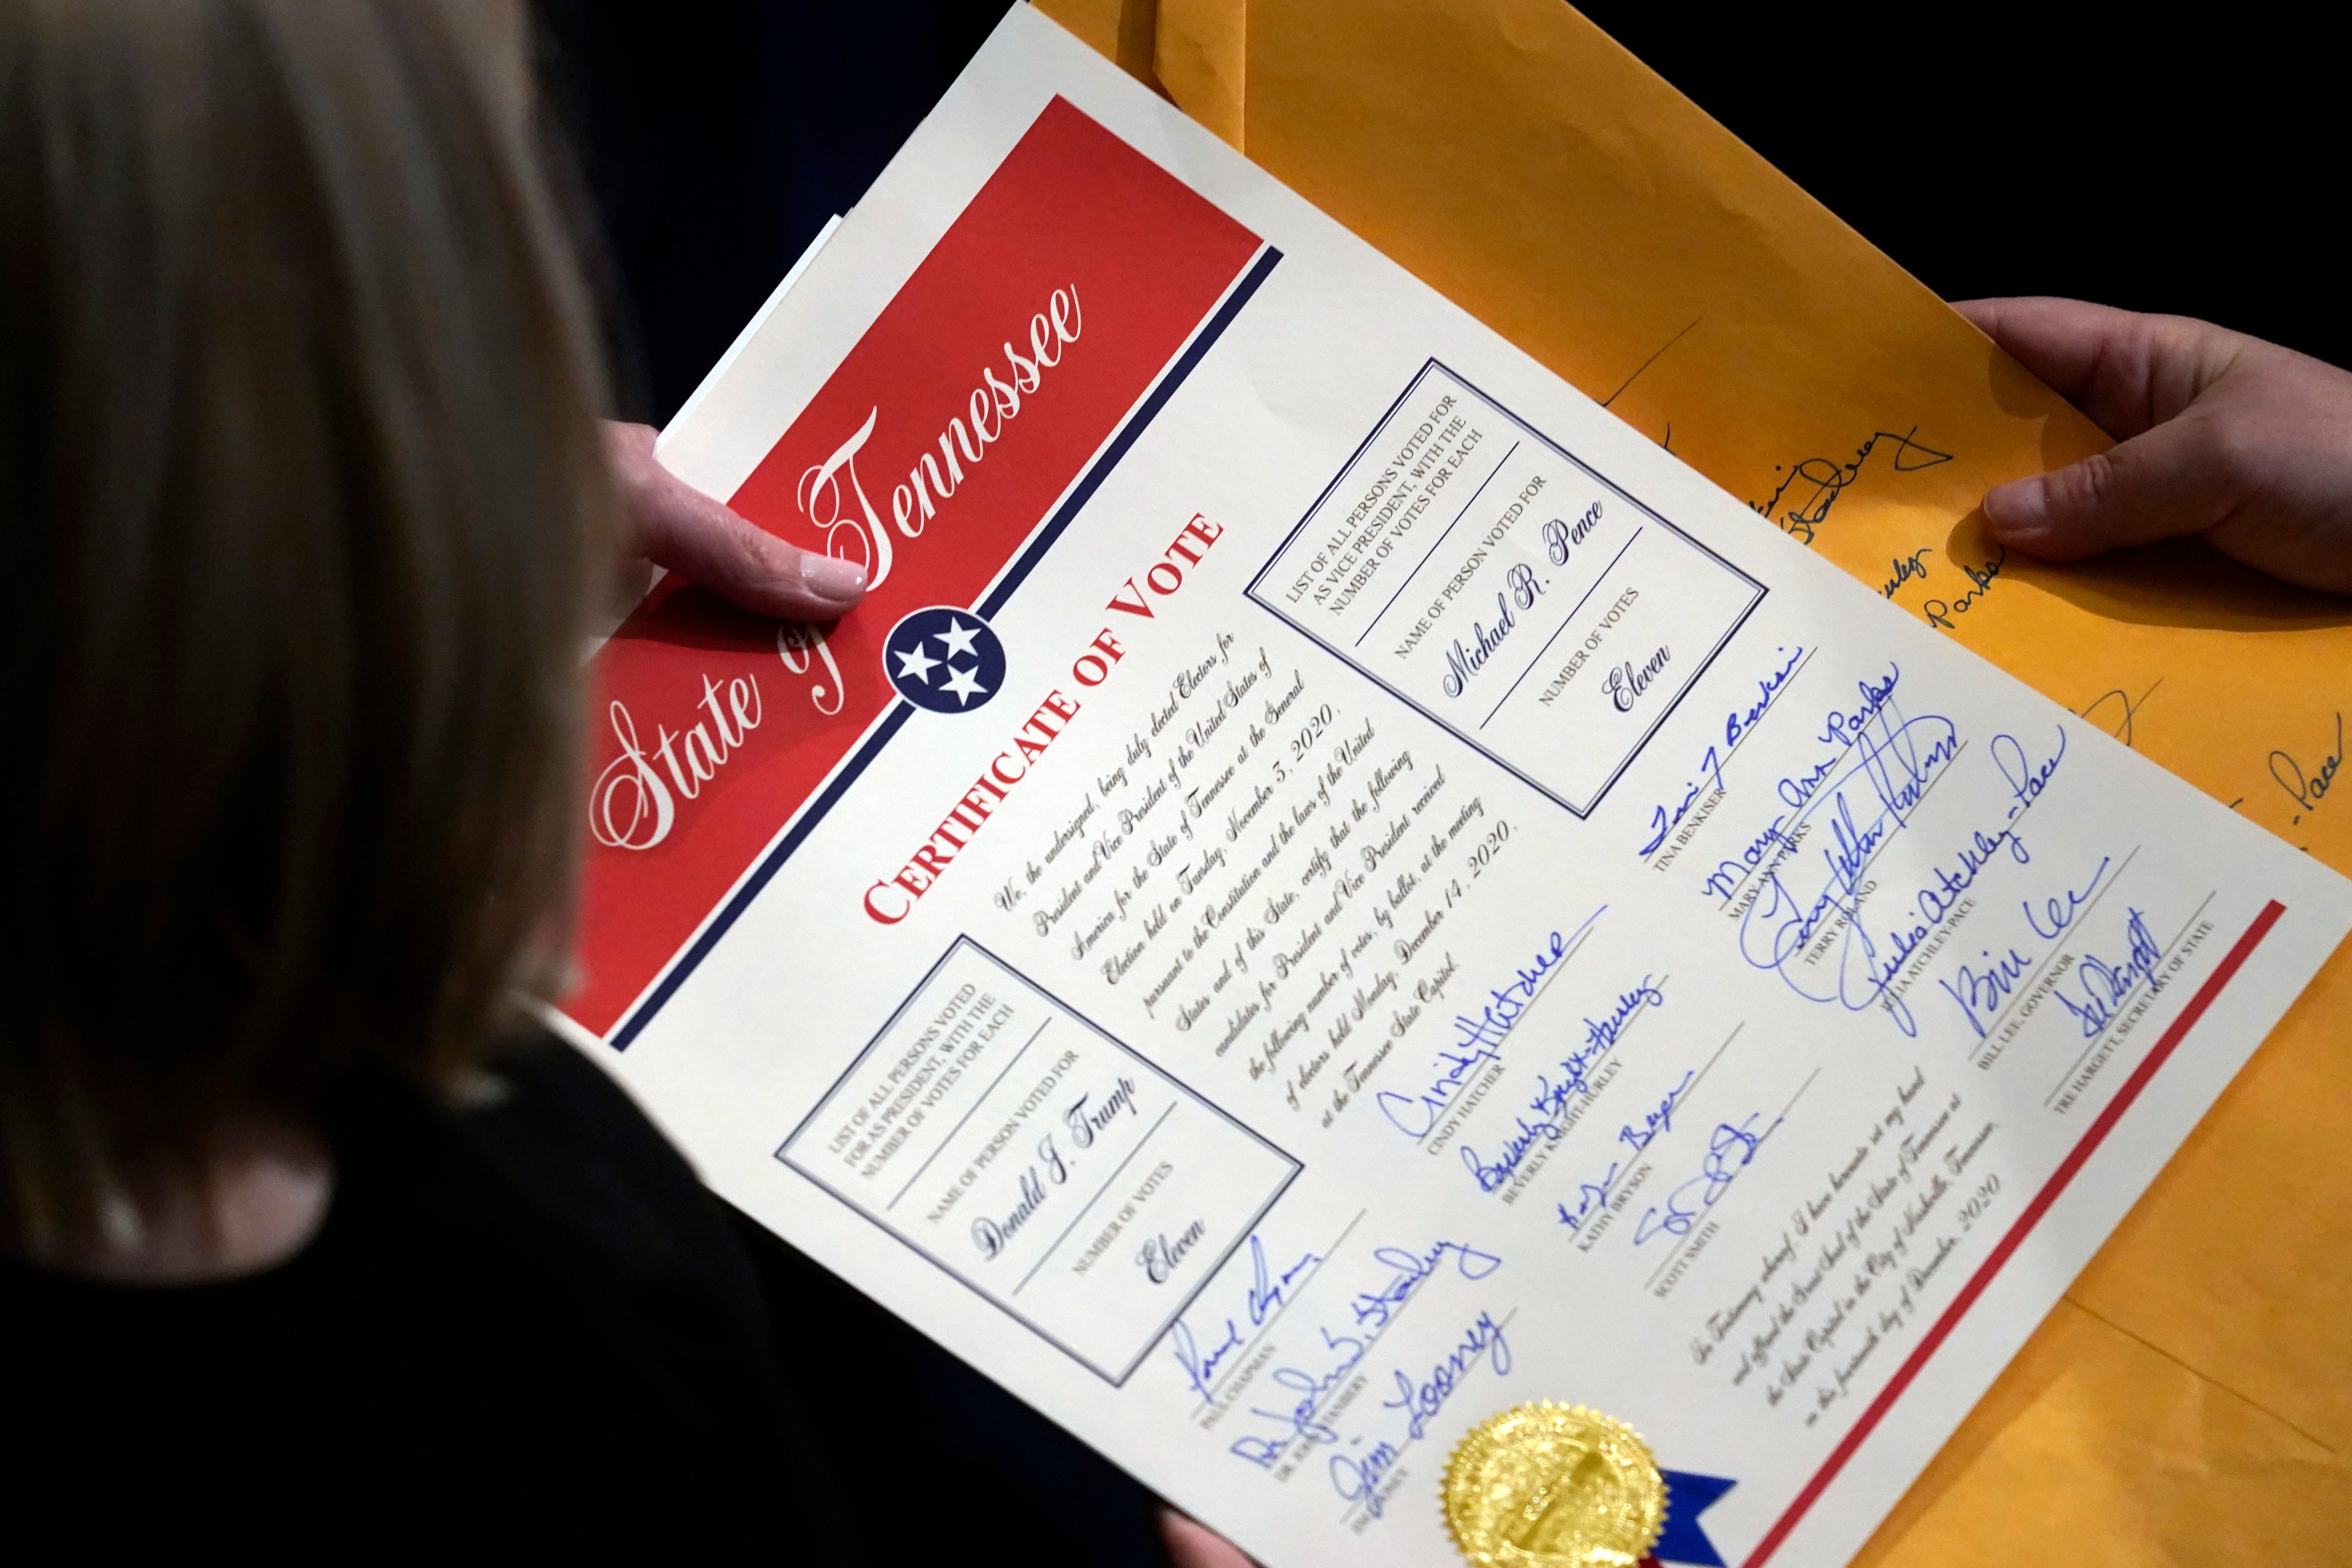 State of Tennessee
CERTIFICATE OF VOTE
LIST OF ALL PERSONS VOTED
FOR AS PRESIDENT, WITH THE
NUMBER OF VOTES FOR EACH
NAME OF PERSON VOTED FOR
Donald J. Trump
NUMBER OF VOTES
Eleven
We, the undersigned, being duly elected Electors for
President and Vice President of the United States of
America for the State of Tennessee at the General
Election held on Tuesday, November 3, 2020,
pursuant to the Constitution and the laws of the United
States and of this State, certify that the following
candidates for President and Vice President received
the following number of votes, by ballot, at the meeting
of electors held Monday, December 14, 2020,
at the Tennessee State Capitol.
LIST OF ALL PERSONS VOTED FOR
AS VICE PRESIDENT, WITH THE
NUMBER OF VOTES FOR EACH
NAME OF PERSON VOTED FOR
Michael R. Pence
NUMBER OF VOTES
Eleven
Paul Chapman
PAUL CHAPMAN
Dr. John W. Stanbery
DR. JOHN STANBERY
Jim Looney
JIM LOONEY
Cindy Hatcher
CINDY HATCHER
Beverly Knight-Hurley
BEVERLY KNIGHT-HURLEY
KATHY BRYSON
SCOTT SMITH
Tina Benkiser
TINA BENKISER
Mary Ann Parks
MARY ANN PARKS
TERRY ROLAND
Julia Atchley-Pace
JULIA ATCHLEY-PACE
Bill Lee
BILL LEE, GOVERNOR
Tre Hargett
TRE HARGETT, SECRETARY OF STATE
In Testimony whereof, I have hereunto set my hand
and affixed the Great Seal of the State of Tennessee at
the State Capitol in the City of Nashville, Tennessee,
on this fourteenth day of December, 2020
Parks
-Pace